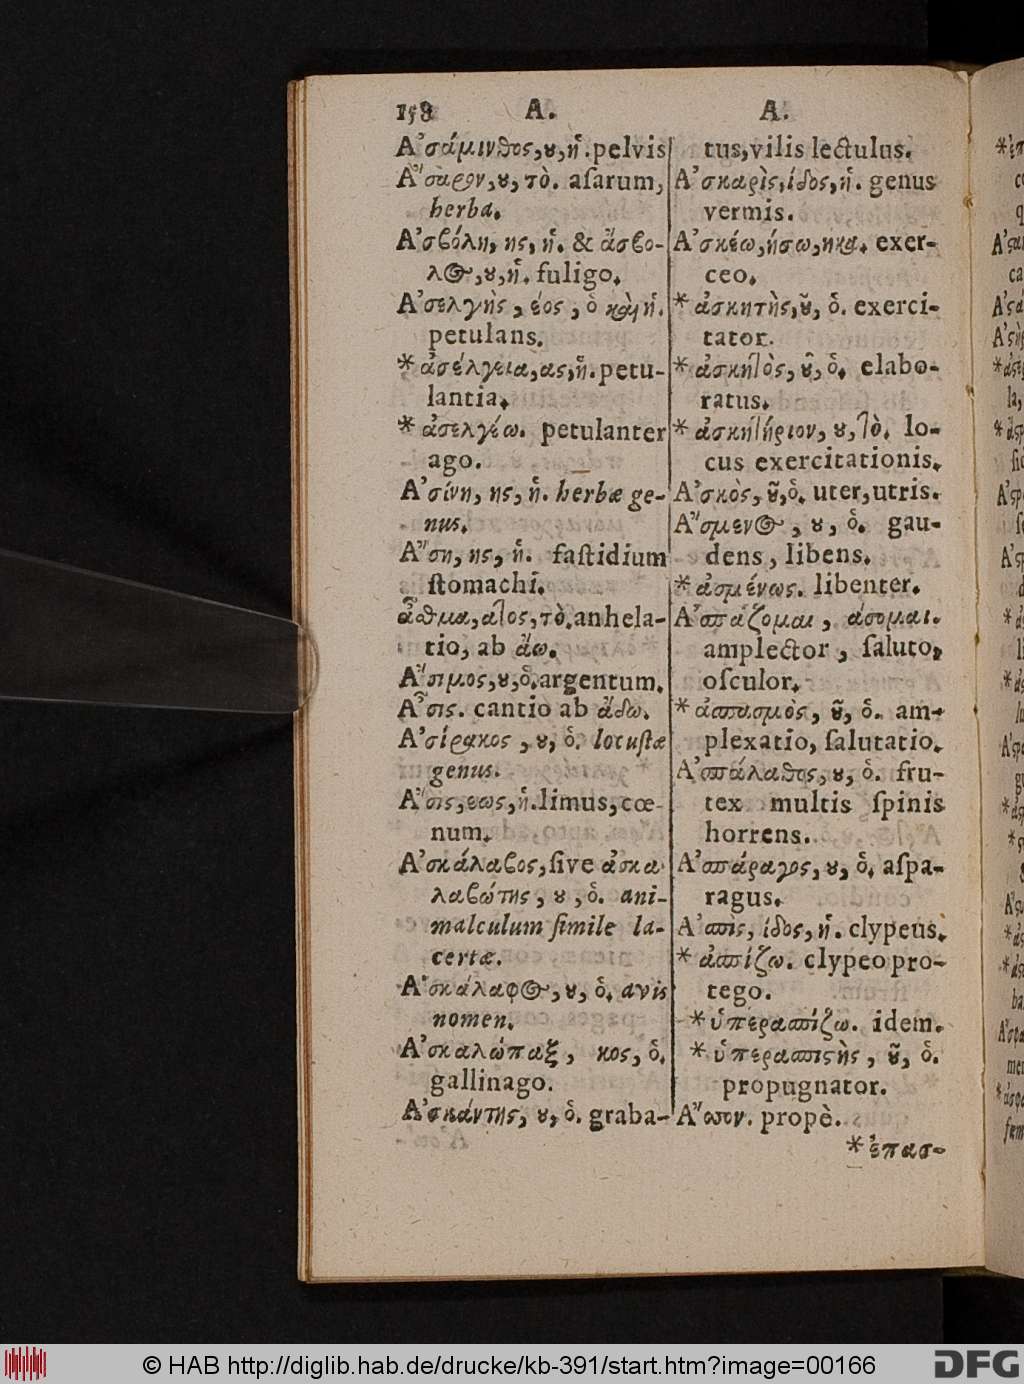 158 A. A.
Ἀσάμινθος,ου,ἡ. pelvis
Ἄσαρον,ου,τὸ. aſarum,
herba.
Ἀσβόλη, ης, ἡ. & ἄσβο-
λος,ου,ἡ. fuligo.
Ἀσελγὴς, έος, ὁ καὶ ἡ.
petulans.
*ἀσέλγεια,ας,ἡ. petu-
lantia.
*ἀσελγέω. petulanter
ago.
Ἀσίνη, ης, ἡ. herbæ ge-
nus.
Ἄση, ης, ἡ. faſtidium
ſtomachi.
ἆσθμα,ατος,τὸ. anhela-
tio, ab ἄω.
Ἄσιμος,ου,ὁ. argentum.
Ἆσις. cantio ab ἄδω.
Ἀσίρακος, ου, ὁ. locuſtæ
genus.
Ἄσις,εως,ἡ. limus, cœ-
num.
Ἀσκάλαβος, ſive ἀσκα-
λαβώτης, ου, ὁ. ani-
malculum ſimile la-
certæ.
Ἀσκάλαφος,ου, ὁ. avis
nomen.
Ἀσκαλώπαξ, κος, ὁ.
gallinago.
Ἀσκάντης, ου, ὁ. graba-
tus, vilis lectulus.
Ἀσκαρὶς,ίδος,ἡ. genus
vermis.
Ἀσκέω,ήσω,ηκα. exer-
ceo.
*ἀσκητὴς,οῦ, ὁ. exerci-
tator.
*ἀσκητὸς, οῦ, ὁ. elabo-
ratus.
*ἀσκητήριον, ου, τὸ. lo-
cus exercitationis.
Ἀσκὸς,οῦ,ὁ. uter,utris.
Ἄσμενος, ου, ὁ. gau-
dens, libens.
*ἀσμένως. libenter.
Ἀσπάζομαι, άσομαι.
amplector, ſaluto,
oſculor.
*ἀσπασμὸς, οῦ, ὁ. am-
plexatio, ſalutatio.
Ἀσπάλαθος,ου, ὁ. fru-
tex multis ſpinis
horrens.
Ἀσπάραγος, ου, ὁ. aſpa-
ragus.
Ἀσπὶς, ίδος, ἡ. clypeus.
*ἀσπίζω. clypeo pro-
tego.
*ὑπερασπίζω. idem.
*ὑπερασπιστὴς, οῦ, ὁ.
propugnator.
Ἄσσον. propè.
*ἐπασ-
© HAB http://diglib.hab.de/drucke/kb-391/start.htm?image=00166
DFG